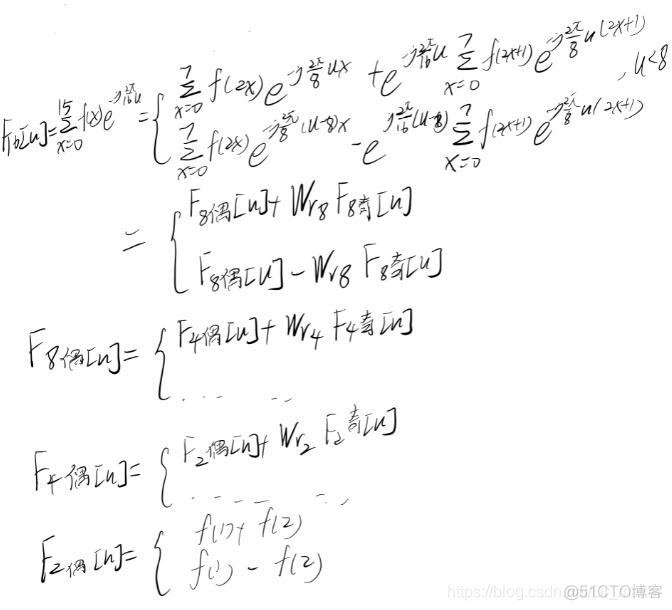 F₁₆[u]=∑_{x=0}^{15} f(x)e^{-j\frac{2π}{16}u}={ ∑_{x=0}^{7} f(2x)e^{-j\frac{2π}{8}ux} + e^{-j\frac{2π}{16}u} ∑_{x=0}^{7} f(2x+1)e^{-j\frac{2π}{8}u(2x+1)} , u<8
∑_{x=0}^{7} f(2x)e^{-j\frac{2π}{8}(u-8)x} - e^{-j\frac{2π}{16}(u-8)} ∑_{x=0}^{7} f(2x+1)e^{-j\frac{2π}{8}u(2x+1)}
= { F₈偶[u]+ Wr₈ F₈奇[u]
F₈偶[u]- Wr₈ F₈奇[u]
F₈偶[u]= { F₄偶[u]+ Wr₄ F₄奇[u]
. - - - -
F₄偶[u]= { F₂偶[u]+ Wr₂ F₂奇[u]
. - - - - -
F₂偶[u]= { f(1)+ f(2)
f(1) - f(2)
https://blog.csdn @51CTO博客